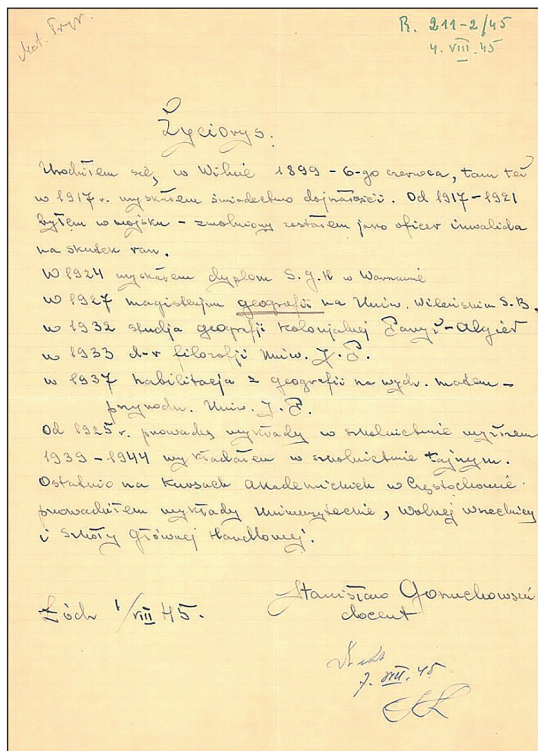 Mat. Przyr.
R. 211-2/45
4. VIII. 45
Życiorys.
Urodziłem się, w Wilnie 1899 - 6-go czerwca, tam też
w 1917 r. uzyskałem świadectwo dojrzałości. Od 1917-1921
byłem w wojsku - zwolniony zostałem jako oficer inwalida
na skutek ran.
W 1924 uzyskałem dyplom S.G.H w Warszawie
w 1927 magisterjum geografii na Uniw. Wileńskim S.B.
w 1932 studja geografji kolonjalnej Paryż-Algier
w 1933 d-r filozofji Uniw. J.P.
w 1937 habilitacja z geografii na wydz. matem-
przyrodn. Uniw. J.P.
Od 1925 r. prowadzę wykłady w szkolnictwie wyższem
1939-1944 wykładałem w szkolnictwie tajnym.
Ostatnio na Kursach Akademickich w Częstochowie
prowadziłem wykłady Uniwersyteckie, Wolnej Wszechnicy
i Szkoły Głównej Handlowej.
Łódź 1/VIII 45.
Stanisław Gorzuchowski
docent
7. VIII. 45